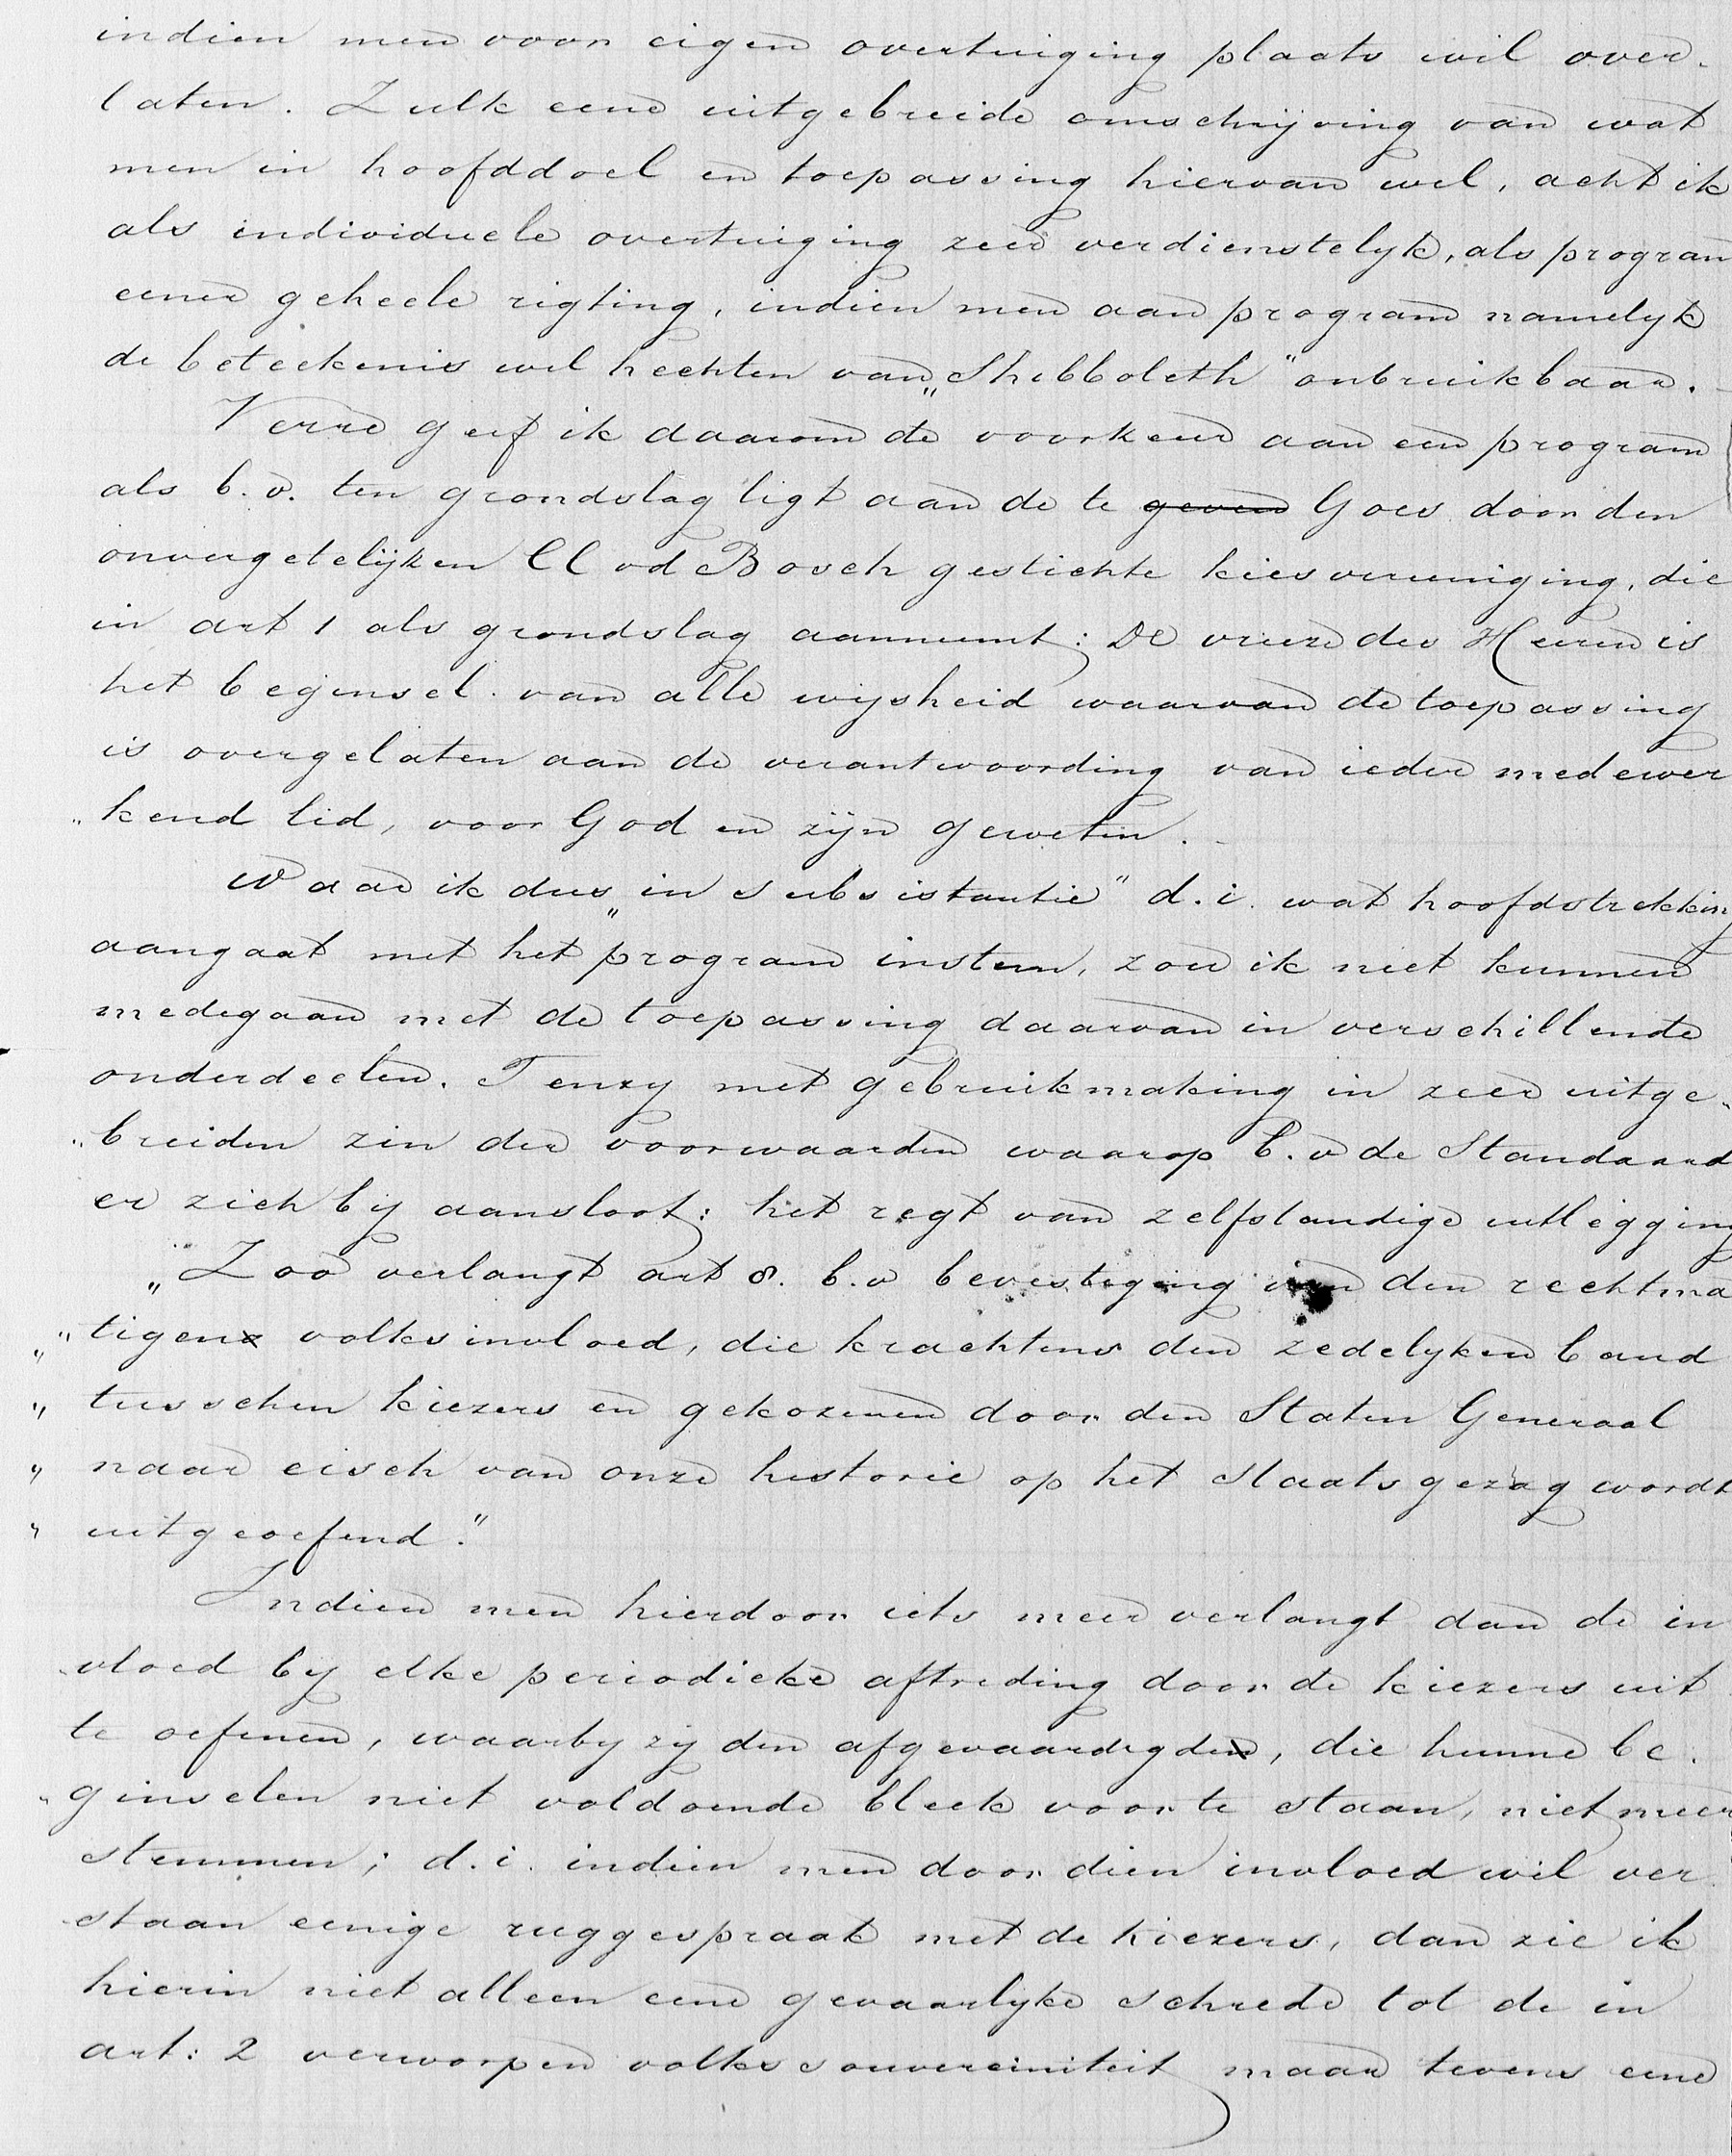 indien men voor eigen overtuiging plaats wil over-
laten. Zulk eene uitgebreide omschrijving van wat
men in hoofddoel en toepassing hiervan wil, acht ik
als individueele overtuiging zeer verdienstelyk, als program
eener geheele rigting, indien men aan program namelyk
de beteekenis wil hechten van „Shibboleth" onbruikbaar.
Verre geef ik daarom de voorkeur aan een program
als b.v. ten grondslag ligt aan de te geven Goes door den
onvergetelijken vd Bosch gestichte kiesvereeniging, die
in art 1 als grondslag aanneemt: De vreeze des Heeren is
het beginsel van alle wijsheid waarvan de toepassing
is overgelaten aan de verantwoording van ieder medewer
„kend lid, voor God en zijn geweten.
Waar ik dus „in subsistantie" d.i. wat hoofdstrekking
aangaat met het program instem, zou ik niet kunnen
medegaan met de toepassing daarvan in verschillende
onderdeelen. Tenzy met gebruikmaking in zeer uitge-
„breiden zin der voorwaarden waarop b.v de Standaard
er zich by aansloot: het regt van zelfstandige uitlegging
„Zoo verlangt art 8. b.v bevestiging van den rechtma
„tigen volksinvloed, die krachtens den zedelyken band
„ tusschen kiezers en gekozenen door den Staten Generaal
„ naar eisch van onze historie op het staatsgezag wordt
„ uitgeoefend."
Indien men hierdoor iets meer verlangt dan de in
vloed by elke periodieke aftreding door de kiezers uit
te oefenen, waarby zy den afgevaardigden, die hunne be-
„ginselen niet voldoende bleek voor te staan, niet meer
stemmen; d.i. indien men door dien invloed wil ver
staan eenige ruggespraak met de kiezers, dan zie ik
hierin niet alleen eene gevaarlyke schrede tot de in
art: 2 verworpen volkssouvereiniteit maar tevens eene